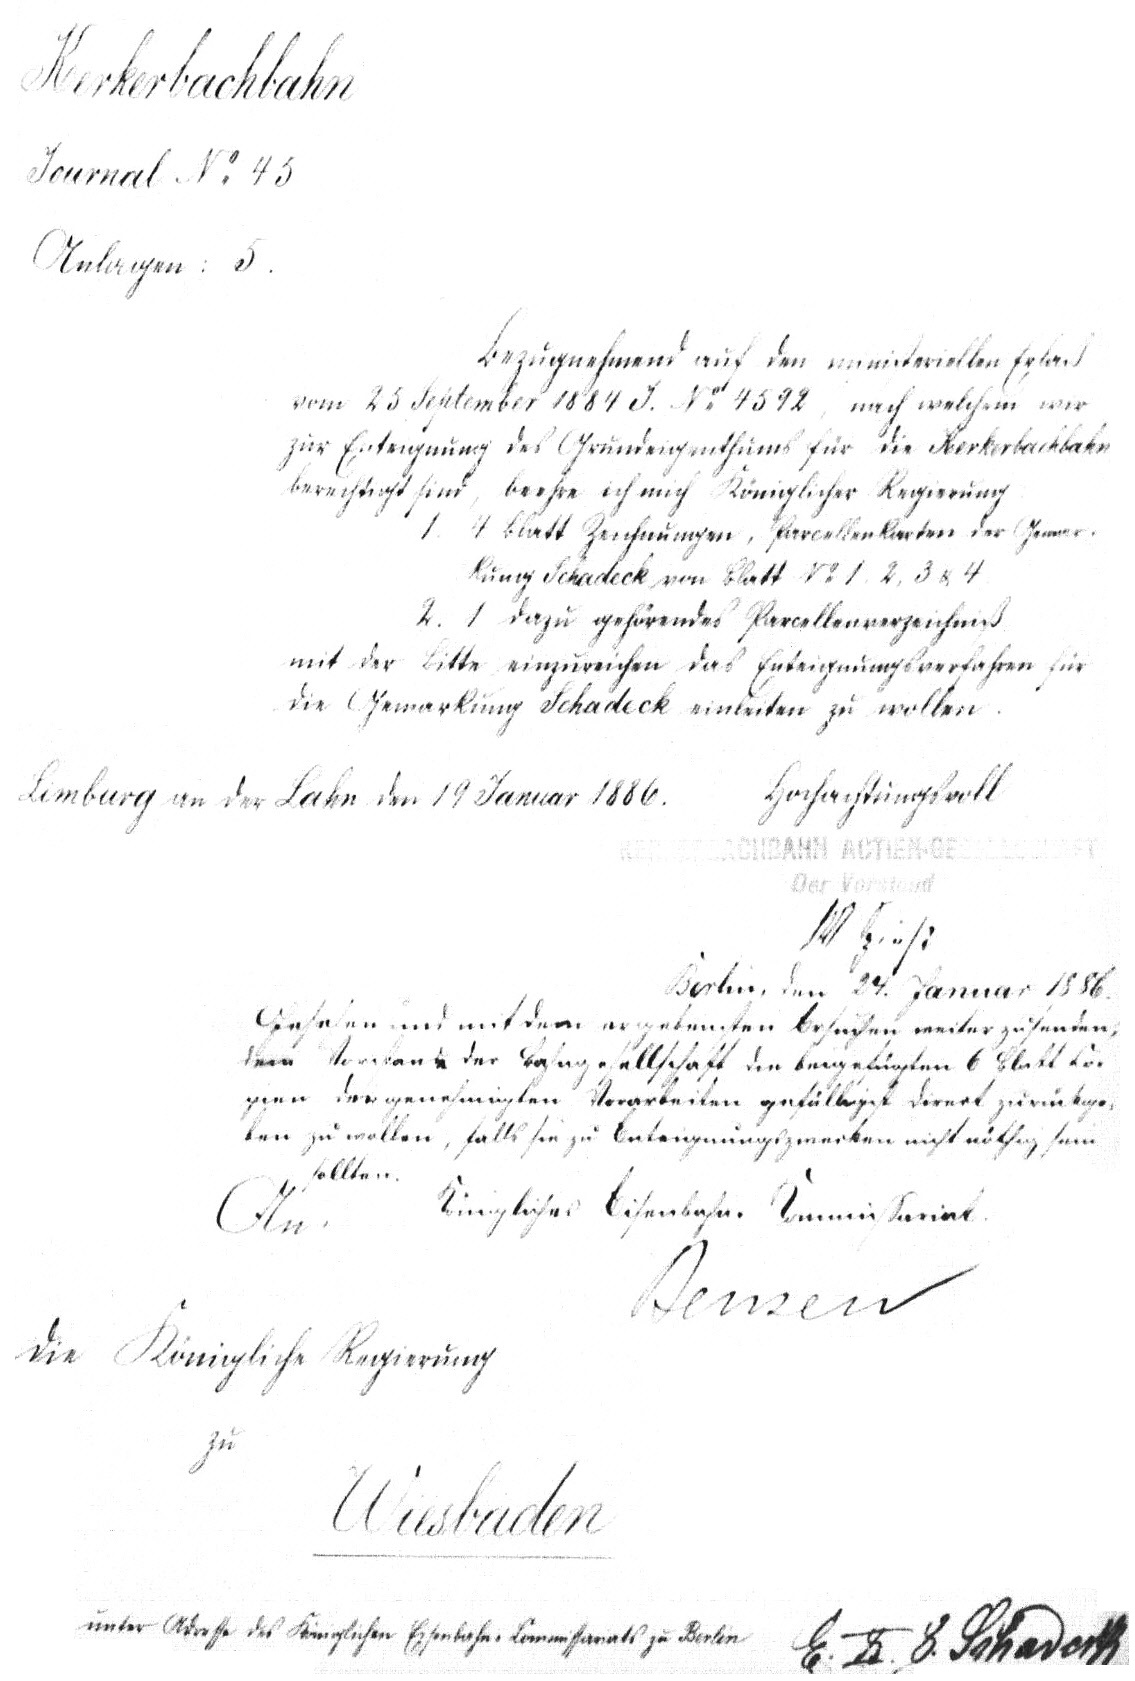 Kerkerbachbahn
Journal No. 45
Anlagen: 5.
Bezugnehmend auf den ministeriellen Erlaß
vom 25 September 1884 J. No. 4592, nach welchem wir
zur Enteignung des Grundeigenthums für die Kerkerbachbahn
berechtigt sind, beehre ich mich Königlicher Regierung
1. 4 Blatt Zeichnungen, Parcellenkarten der Gemar-
kung Schadeck von Blatt No 1. 2, 3 & 4
2. 1 dazu gehörendes Parcellenverzeichniß
mit der Bitte einzureichen das Enteignungsverfahren für
die Gemarkung Schadeck einleiten zu wollen.
Limburg an der Lahn den 19 Januar 1886. Hochachtungsvoll
KERKERBACHBAHN ACTIEN-GESELLSCHAFT
Der Vorstand
Berlin, den 24. Januar 1886.
Gesehen und mit dem ergebensten Ersuchen weiter zu senden,
dem Vorstande der Bahngesellschaft die beigefügten 6 Blatt Co-
pien der genehmigten Vorarbeiten gefälligst direct zurückge-
ben zu wollen, falls sie zu Enteignungszwecken nicht nöthig sein
sollten.
An. Königliches Eisenbahn-Kommissariat.
Bensen
die Königliche Regierung
zu
Wiesbaden
unter Adresse des Königlichen Eisenbahn-Commissariats zu Berlin
E. II. 8. Schadeck